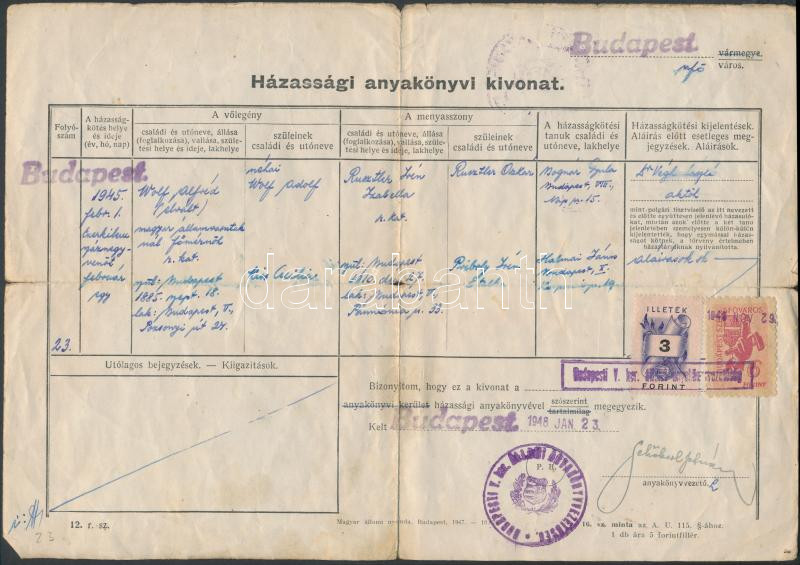 Budapest vármegye.
város.
Házassági anyakönyvi kivonat.
Folyó-
szám
A házasság-
kötés helye
és ideje
(év, hó, nap)
A vőlegény
családi és utóneve, állása
(foglalkozása), vallása, szüle-
tési helye és ideje, lakhelye
szüleinek
családi és utóneve
A menyasszony
családi és utóneve, állása
(foglalkozása), vallása, szüle-
tési helye és ideje, lakhelye
szüleinek
családi és utóneve
A házasságkötési
tanuk családi és
utóneve, lakhelye
Házasságkötési kijelentések.
Aláírás előtt esetleges meg-
jegyzések. Aláírások.
Budapest.
1945.
febr. 1.
Ezerkilenc
száznegy-
venöt
február
egy
23.
Wolf Alfréd
(elvált)
magyar államvasutak
r. kat.
szül: Budapest
1885. szept. 18.
lak: Budapest, V.,
Pozsonyi út 24.
néhai
Wolf Adolf
Rusztler Irén
Izabella
r. kat.
szül: Budapest
lak: Budapest, V.,
Pannonia u. 33.
Rusztler Oszkár
Bognár Gyula
Budapest, VIII.,
Nép u. 15.
Halmai János
Budapest, X.
Dr Végh László
aktól
mint polgári tisztviselő az itt nevezett
és előtte együttesen jelenlévő házasuló-
kat, miután azok előtte és a két tanú
jelenlétében személyesen külön-külön
kijelentették, hogy egymással házas-
ságot kötnek, a törvény értelmében
házastársaknak nyilvánította.
aláírások
darabanth
ILLETÉK
3
FORINT
FŐVÁROS
1948 NOV 23.
FORINT
Utólagos bejegyzések. — Kiigazítások.
Bizonyítom, hogy ez a kivonat a
anyakönyvi kerület házassági anyakönyvével szószerint
tartalmilag megegyezik.
Kelt Budapest. 1948 JAN. 23.
BUDAPESTI V. ker. ÁLLAMI ANYAKÖNYVVEZETŐSÉG.
P. H.
anyakönyvvezető.
12. r. sz.
23
Magyar állami nyomda. Budapest, 1947.
16. sz. minta az A. U. 115. §-ához.
1 db ára 5 forintfillér.